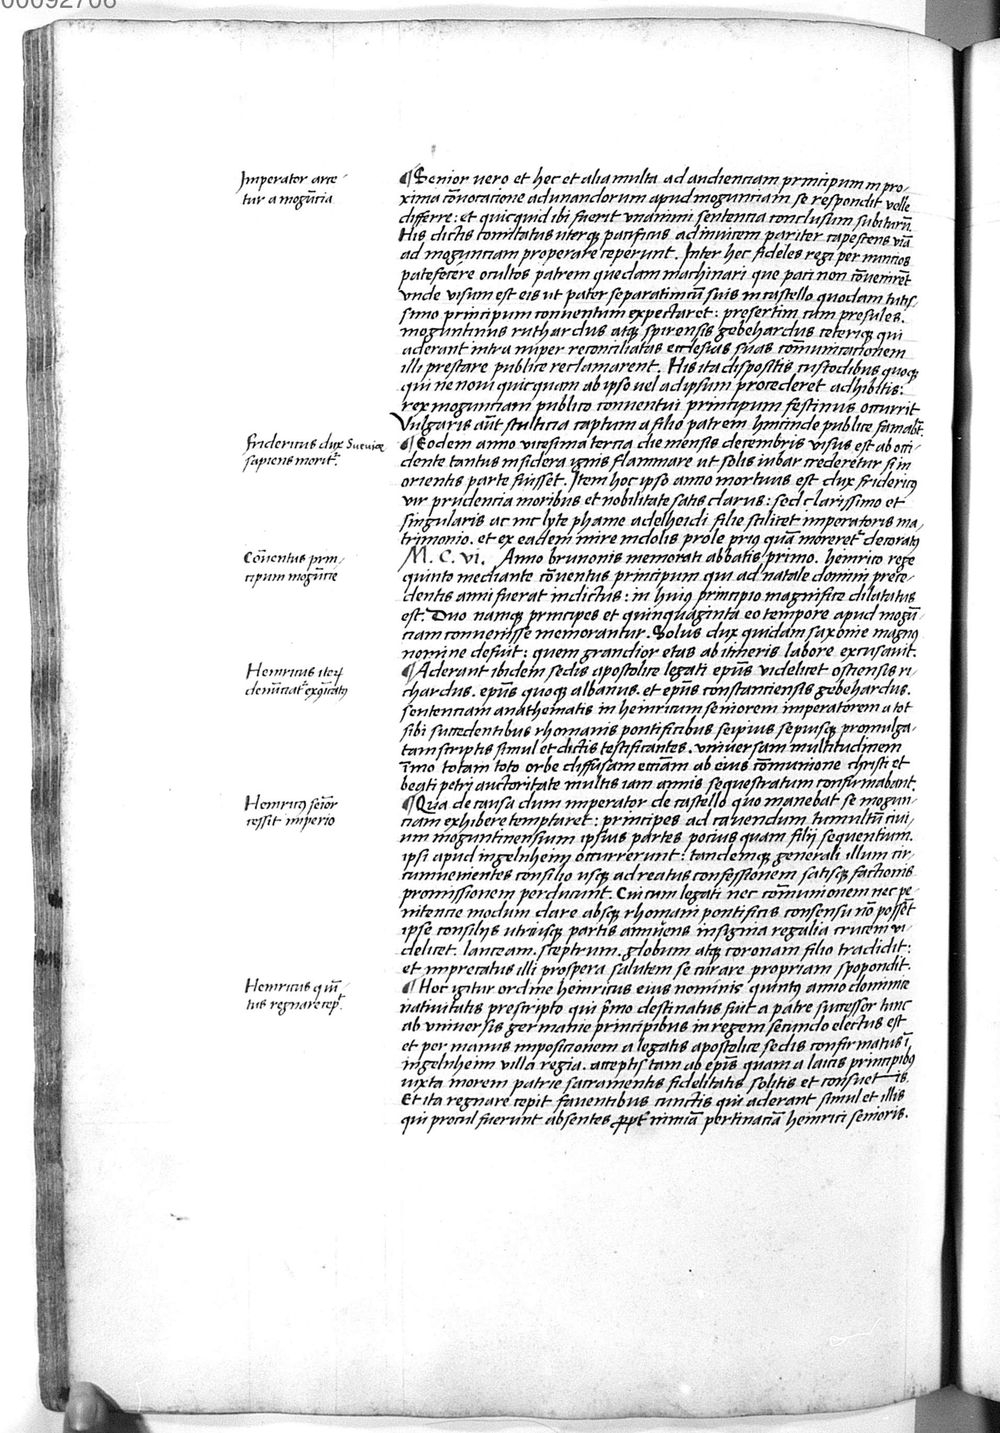 00092706
Imperator arce-
tur a mogūcia
¶ Senior vero et hec et alia multa ad audienciam principum in pro-
xima cōuocacione adunandorum apud mogunciam se respondit velle
differre: et quicquid ibi fuerit vnanimi sentencia conclusum subiturū.
His dictis comitatus uterqꝫ pacificus adinuicem pariter capescens viā
ad mogunciam properare ceperunt. Inter hec fideles regi per nuncios
patefecere ocultos patrem quedam machinari que paci non cōuenirēt
vnde visum est eis ut pater separatim cū suis in castello quodam tutis-
simo principum conuentum expectaret: presertim cum presules.
moguntinus ruthardus atqꝫ spirensis gebehardus ceteriqꝫ qui
aderant intra nuper reconciliatas ecclesias suas cōmunicacionem
illi prestare publice reclamarent. His ita dispositis custodibus quoqꝫ
qui ne noui quicquam ab ipso vel ad ipsum procederet adhibitis:
rex mogunciam publico conuentui principum festinus occurrit
Vulgaris aūt stulticia captum a filio patrem hincinde publice famabt.
Fridericus dux Sueuiae
sapiens morit͛.
¶ Eodem anno vicesima tercia die mensis decembris visus est ab occi-
dente tantus in sidera ignis flammare ut solis iubar crederetur si in
orientis parte fuisset. Item hoc ipso anno mortuus est dux fridericꝰ
vir prudencia moribus et nobilitate satis clarus: sed clarissimo et
singularis ac inclyte phame adelheidi filie scilicet imperatoris ma-
trimonio. et ex eadem mire indolis prole priꝰ quā moreret͛ decoratꝰ
Cōuentus prin-
cipum mogūcie
M. C. vi. Anno brunonis memorati abbatis primo. heinrico rege
quinto mediante cōuentus principum qui ad natale domini prece-
dentis anni fuerat indictus: in huiꝰ principio magnifice dilatatus
est. Duo namqꝫ principes et quinquaginta eo tempore apud mogū-
ciam conuenisse memorantur. Solus dux quidam saxonie magnꝰ
nomine defuit: quem grandior etas ab itineris labore excusauit.
Heinricus iteꝝ
denūciat͛ excōicatꝰ
¶ Aderant ibidem sedis apostolice legati epūs videlicet ostiensis ri-
chardus. epūs quoqꝫ albanus. et epūs constanciensis gebehardus.
sentenciam anathematis in heinricum seniorem imperatorem a tot
sibi succedentibus rhomanis pontificibus sepius sepiusqꝫ promulga-
tam scriptis simul et dictis testificantes. vniuersam multitudinem
īmo totam toto orbe diffusam ecciam ab eius cōmunione christi et
beati petri auctoritate multis iam annis sequestratum confirmabant.
Heinricꝰ seīor
cessit imperio
¶ Qua de causa dum imperator de castello quo manebat se mogun-
ciam exhibere temptaret: principes ad cauendum tumultū ciui-
um moguntinensium ipsius partes pocius quam filij sequentium.
ipsi apud ingelnheim occurrerunt: tandemqꝫ generali illum cir-
cumuenientes consilio usqꝫ ad reatus confessionem satisqꝫ factionis
promissionem perducunt. Cui cum legati nec cōmunionem nec pe-
nitencie modum dare absqꝫ rhomani pontificis consensu nō possēt
ipse consilijs utriusqꝫ partis annuens insignia regalia crucem vi-
delicet. lanceam. sceptrum. globum atqꝫ coronam filio tradidit:
et imprecatus illi prospera salutem se curare propriam spopondit.
Heinricus quī-
tus regnare cep͛.
¶ Hoc igitur ordine heinricus eius nominis quintꝰ anno dominice
natiuitatis prescripto qui p̄mo destinatus fuit a patre successor tunc
ab vniuersis germanie principibus in regem secundo electus est
et per manus imposicionem a legatis apostolice sedis confirmatus ī
ingelnheim villa regia. acceptis tam ab epīs quam a laicis principibꝰ
iuxta morem patrie sacramentis fidelitatis solitis et consuetis.
Et ita regnare cepit fauentibus cunctis qui aderant simul et illis
qui procul fuerunt absentes ꝓpt͛ nimiā pertinaciā heinrici senioris.